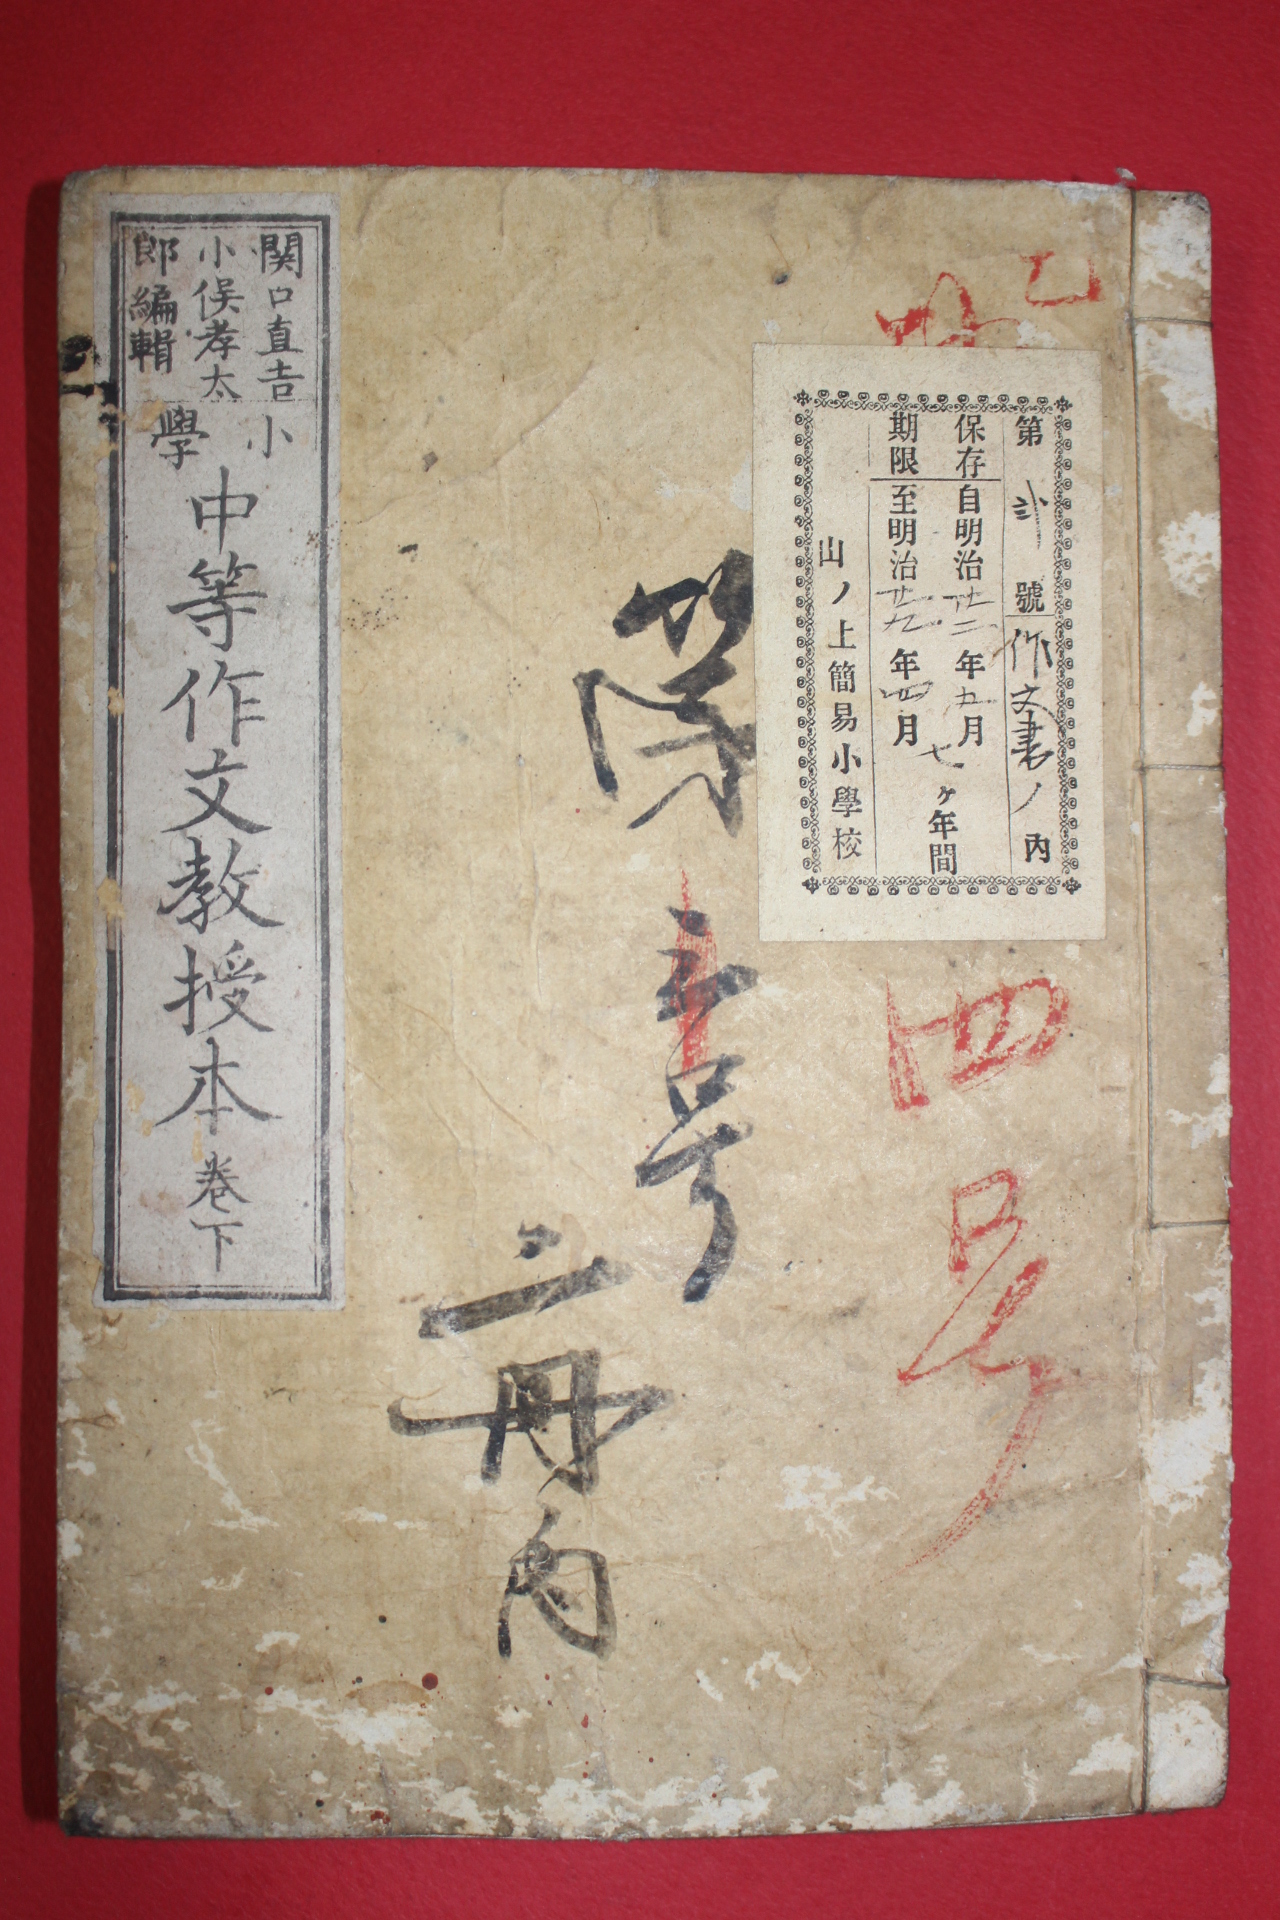 関口直吉
小俣孝太
郎編輯
小學
中等作文教授本 巻下
第 弐 號 作文書ノ内
保存自明治廿二年五月
期限至明治廿九年四月
七ヶ年間
山ノ上簡易小學校
第
号
二冊内
乙
四号